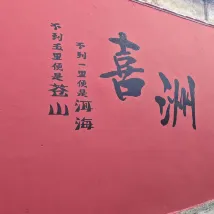 不到五里便是苍山
不到一里便是洱海
喜洲